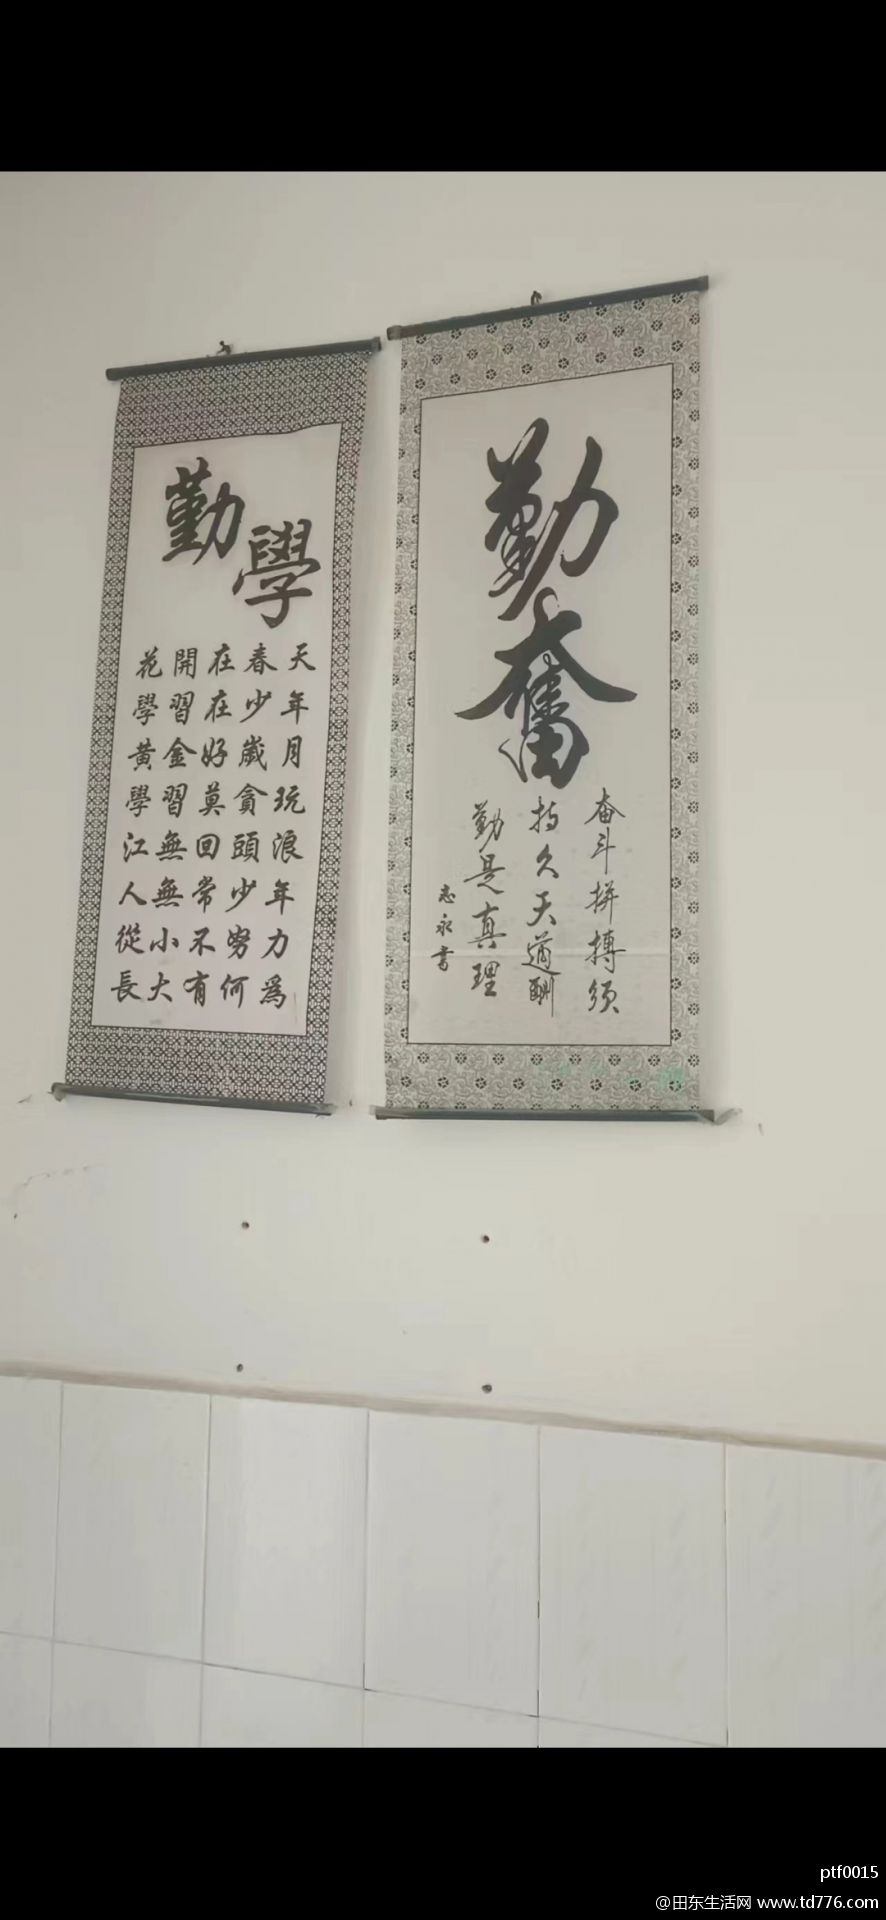 勤學
花開在春天
學習在少年
黃金好歲月
學習莫貪玩
江無回頭浪
人無常少年
從小不努力
長大有何為
勤奮
奋斗拼搏须
持久天道酬
勤是真理
志永書
ptf0015
@田东生活网 www.td776.com